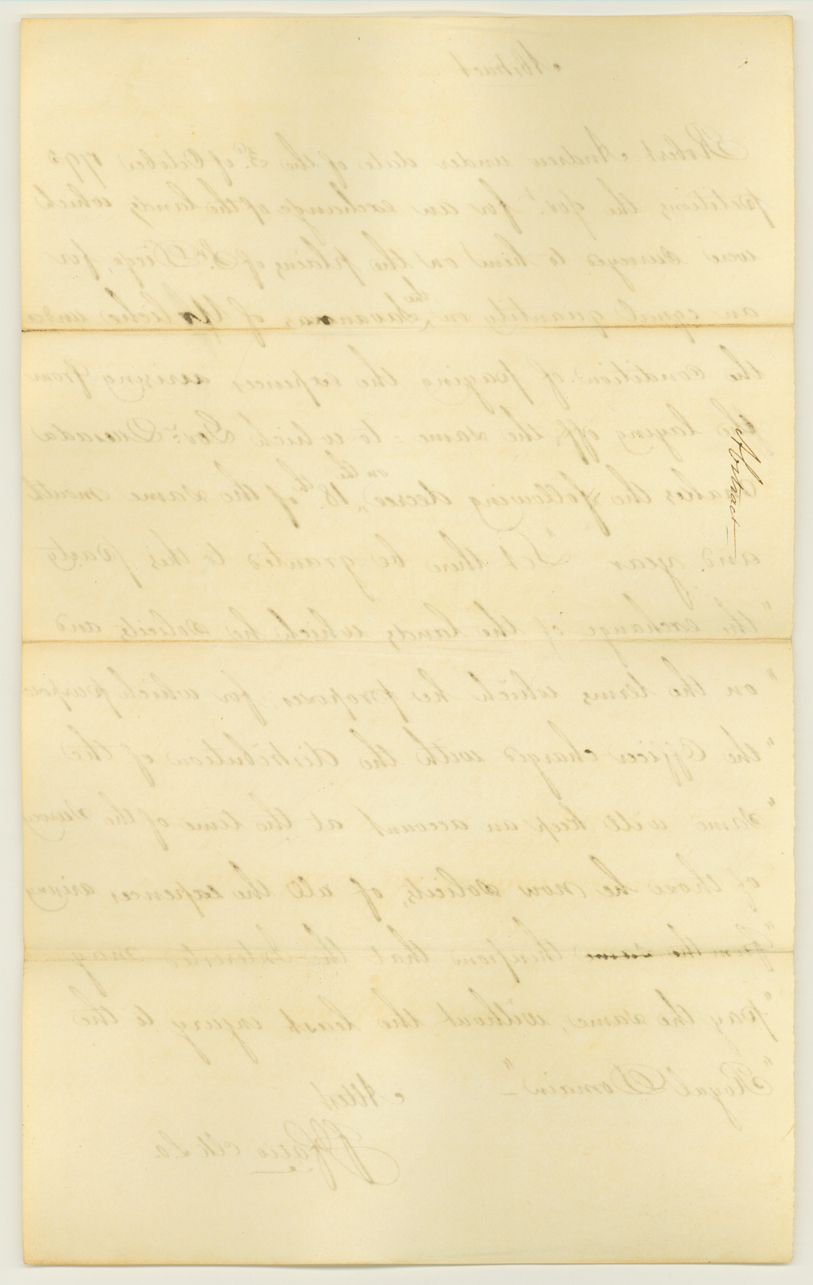 Abstract
Robert Andrew under date of the 3d. of October 1792
petitions the Govr. for an exchange of the lands which
were surveyed to him on the plains of St. Diego, for
an equal quantity on the Savannas of under
the conditions of paying the expences arising from
the laying off the same : to which Govr. Quesada
makes the following decree, on the 18th. of the same month
and year "Let there be granted to this party
"the exchange of the lands which he solicits and
"on the terms which he proposes for which purpose
"the Officer charged with the distribution of the
"same will keep an account at the time of the survey
"of those he now solicits, of all the expences arising
"from the same therefrom that the interested may
"pay the same, without the least injury to the
"Royal Domain" –
Attest
Abstract –